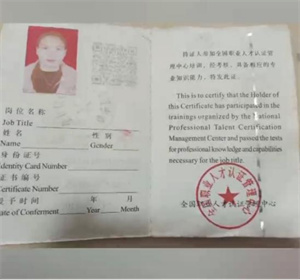 岗位名称
Job Title
姓名 性别
Name Gender
身份证号
Identity Card Number
证书编号
Certificate Number
授予时间 年 月
Date of Conferment Year Month
持证人参加全国职业人才认证管
理中心培训，经考核，具备相应的专
业知识能力，特发此证。
This is to certify that the Holder of
this Certificate has participated in the
trainings organized by the National
Professional Talent Certification
Management Center and passed the tests
for professional knowledge and capabilities
necessary for the job title.
全国职业人才认证管理中心